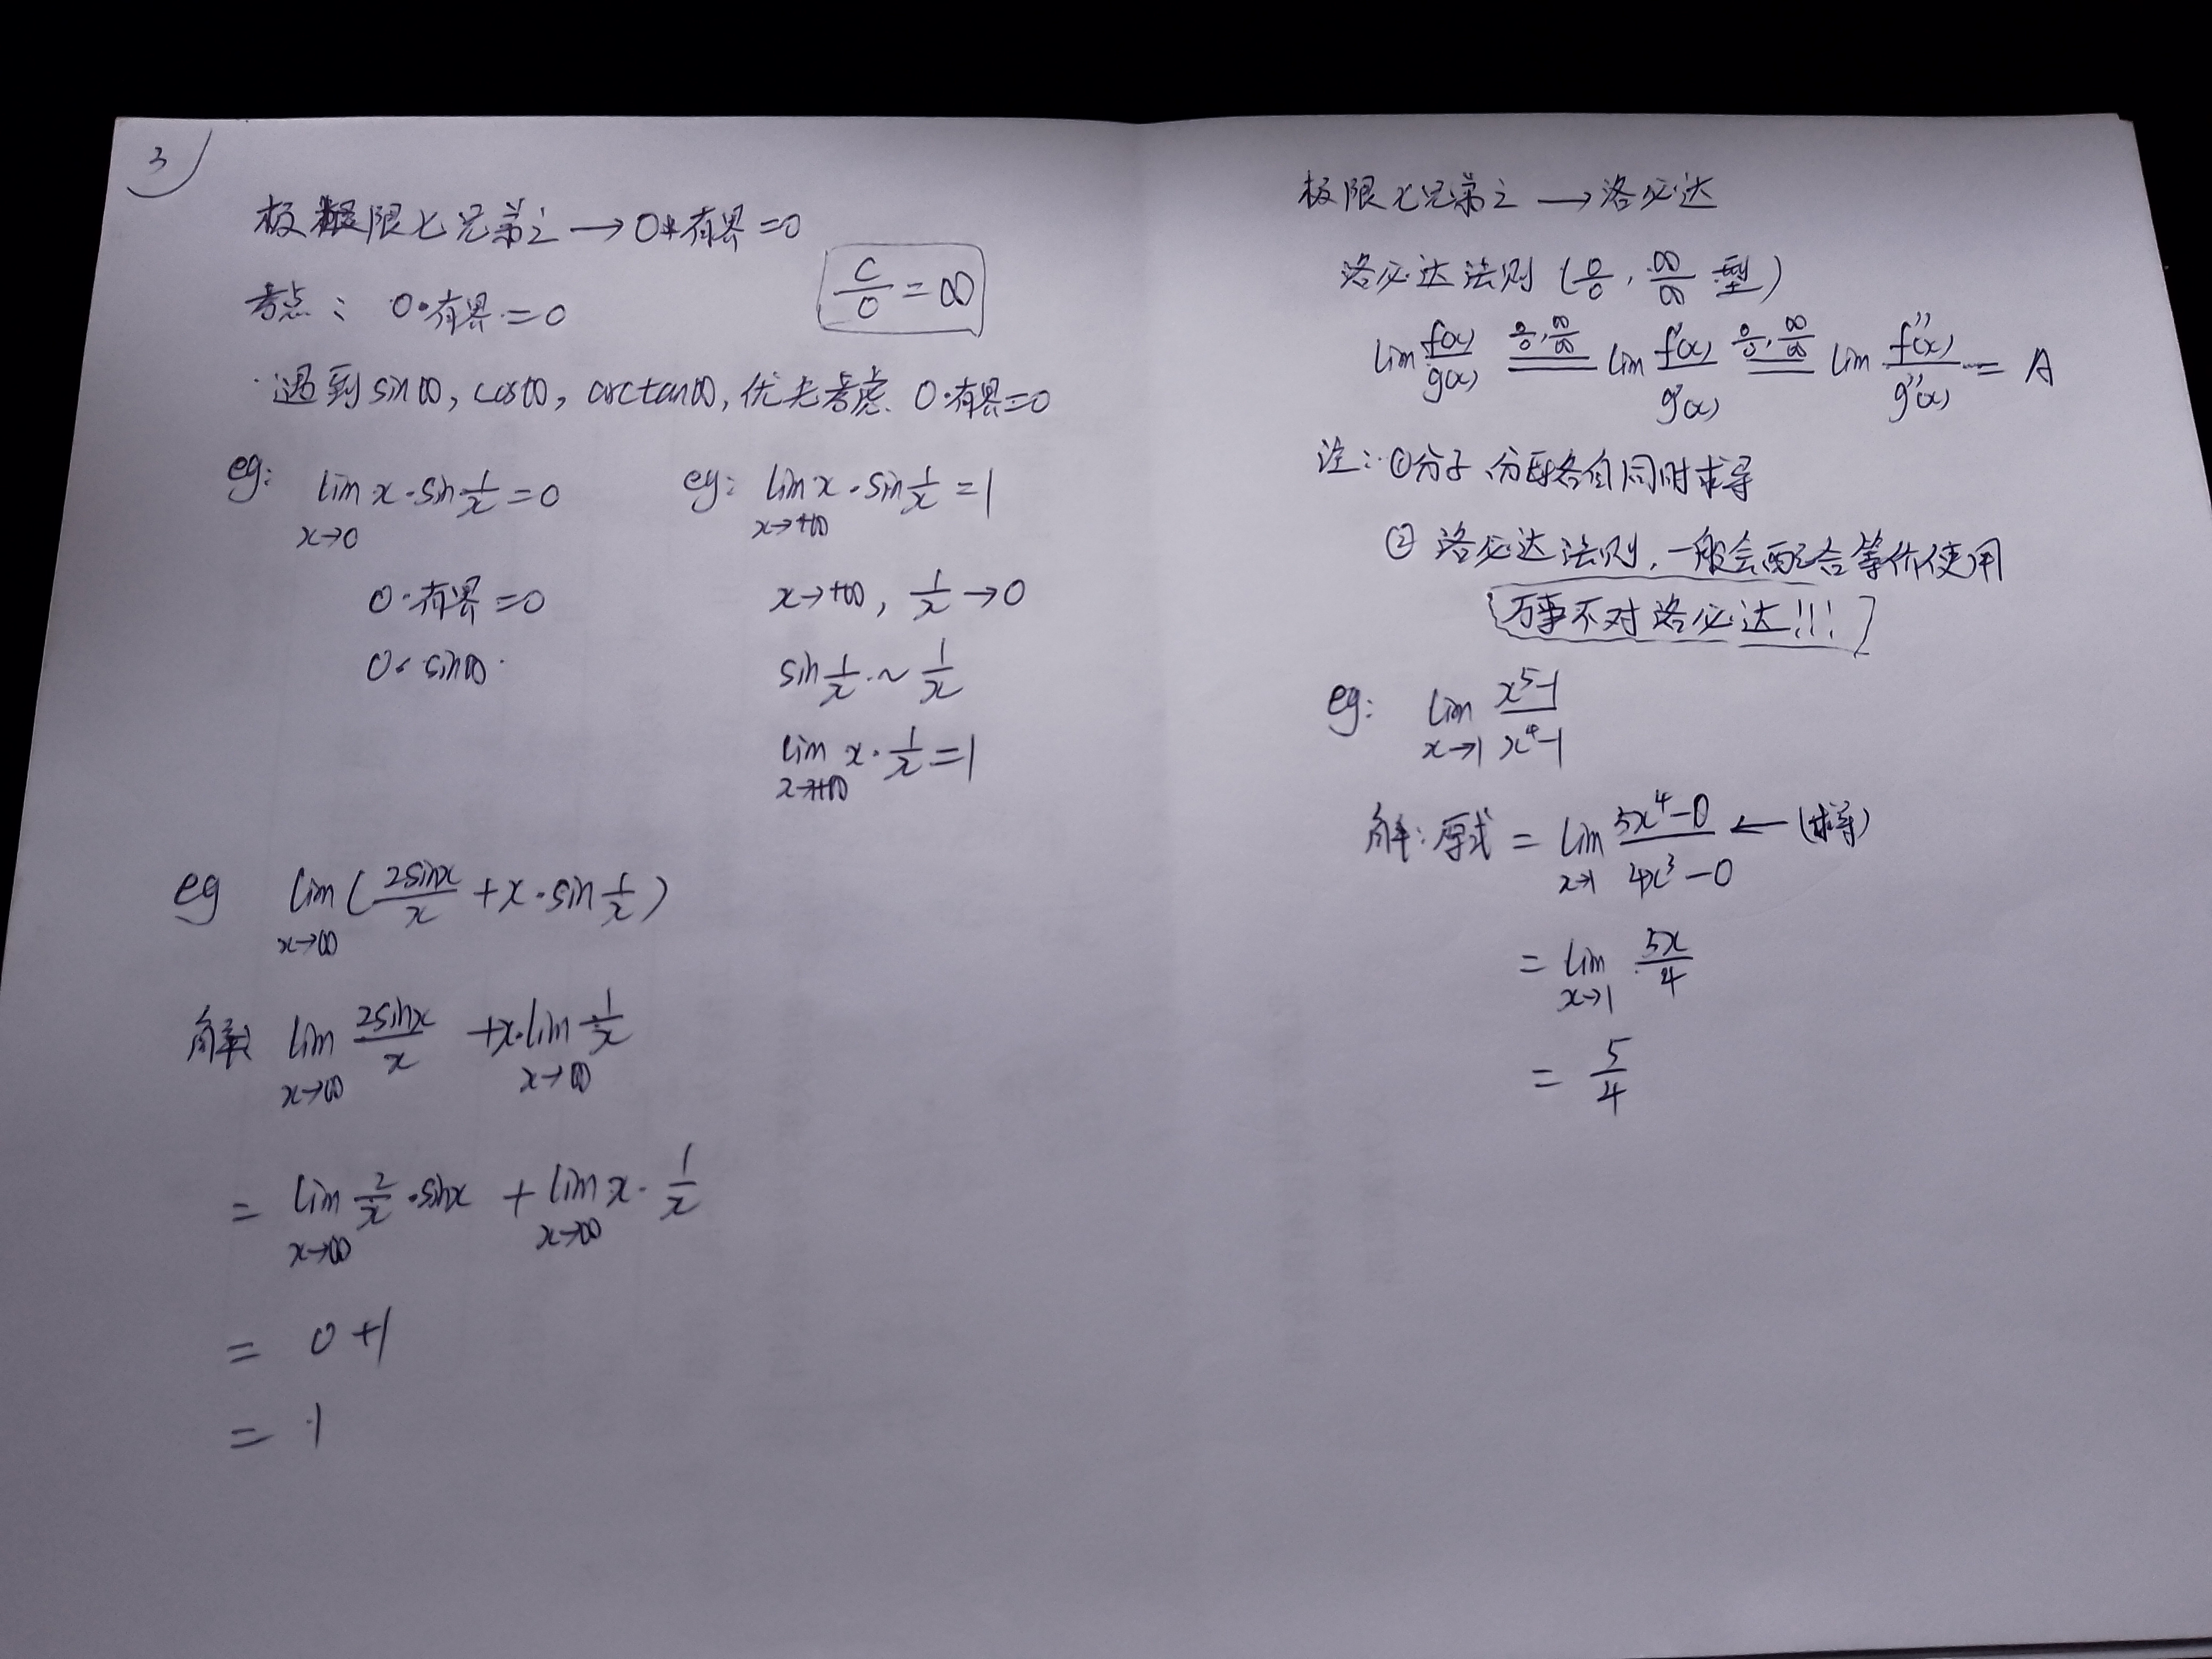 3
极限七兄弟之 → 0*有界=0
考点: 0·有界=0
c/0 = ∞
·遇到sin∞, cos∞, arctan∞, 优先考虑. 0·有界=0
eg: lim x→0 x·sin 1/x = 0
0·有界=0
0·sin∞
eg: lim x→+∞ x·sin 1/x = 1
x→+∞, 1/x → 0
sin 1/x ~ 1/x
lim x→+∞ x·1/x = 1
eg lim x→∞ (2sinx/x + x·sin 1/x)
解: lim x→∞ 2sinx/x + x·lim x→∞ 1/x
= lim x→∞ 2/x·sinx + lim x→∞ x·1/x
= 0+1
= 1
极限七兄弟之 → 洛必达
洛必达法则 (0/0, ∞/∞ 型)
lim f(x)/g(x) 0/0, ∞/∞ = lim f'(x)/g'(x) 0/0, ∞/∞ = lim f''(x)/g''(x) = A
注: ①分子、分母各自同时求导
② 洛必达法则, 一般会配合等价使用
万事不对洛必达!!!
eg: lim x→1 x⁵-1/x⁴-1
解: 原式 = lim x→1 5x⁴-0/4x³-0 ← (求导)
= lim x→1 5x/4
= 5/4